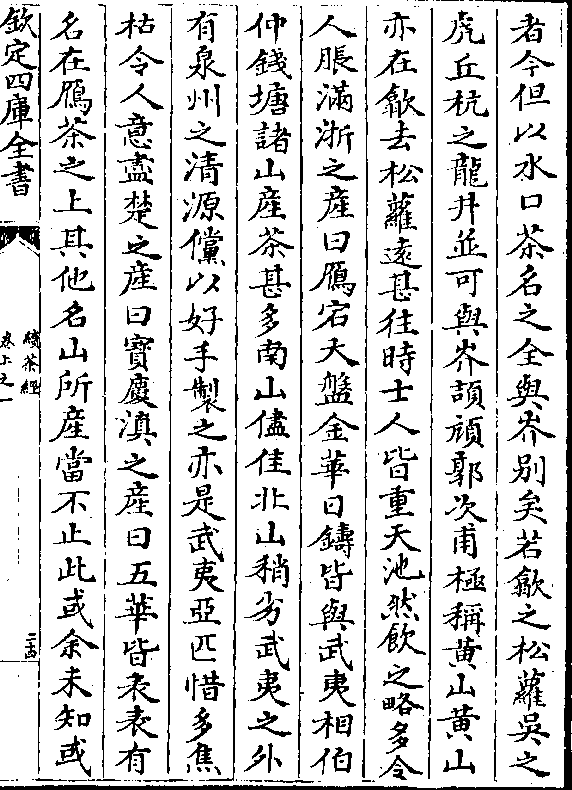 者今但以水口茶名之全與岕别矣若歙之松蘿吳之
虎丘杭之龍井並可與岕頡頏郭次甫極稱黄山黄山
亦在歙去松蘿遠甚往時士人皆重天池然飲之略多令
人脹滿浙之産曰鴈宕大盤金華日鑄皆與武夷相伯
仲錢塘諸山産茶甚多南山儘佳北山稍劣武夷之外
有泉州之清源儻以好手製之亦是武夷亞匹惜多焦
枯令人意盡楚之産曰寶慶滇之産曰五華皆表表有
名在鴈茶之上其他名山所産當不止此或余未知或
欽定四庫全書
續茶經
卷上之一
二十四